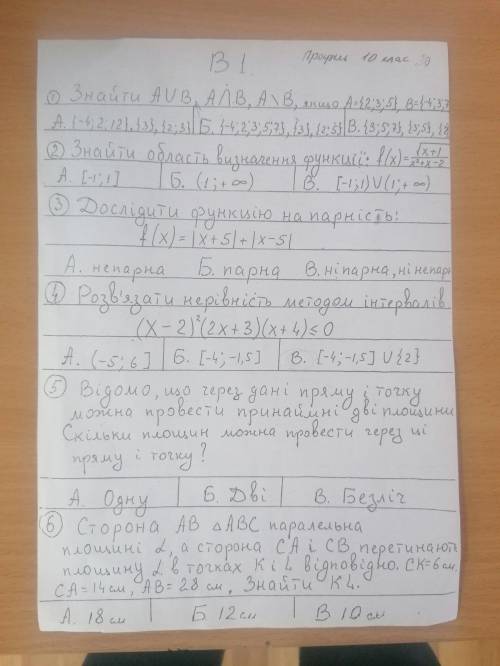 В 1. Профиль 10 клас
① Знайти A∪B, A∩B, A\B, якщо A={2;3;5}, B={-4;3;7
А. {-4;2;12}, {3}, {2;3} Б. {-4;2;3;5;7}, {3}, {2;5} В. {3;5;7}, {3;5}, {2
② Знайти область визначення функції: f(x)=√(x+1)/(x²+x-2)
А. [-1;1] Б. (1;+∞) В. [-1;1)∪(1;+∞)
③ Дослідити функцію на парність:
f(x)=|x+5|+|x-5|
А. непарна Б. парна В. ні парна, ні непарн
④ Розв'язати нерівність методом інтервалів.
(x-2)²(2x+3)(x+4)≤0
А. (-5;6] Б. [-4;-1,5] В. [-4;-1,5]∪{2}
⑤ Відомо, що через дані пряму і точку
можна провести принаймні дві площини
Скільки площин можна провести через ці
пряму і точку?
А. Одну Б. Дві В. Безліч
⑥ Сторона AB △ABC паралельна
площині α, а сторона CA і CB перетинають
площину α в точках K і L відповідно. CK=6см.
CA=14см, AB=28см, Знайти KL.
А. 18см Б. 12см В. 10см